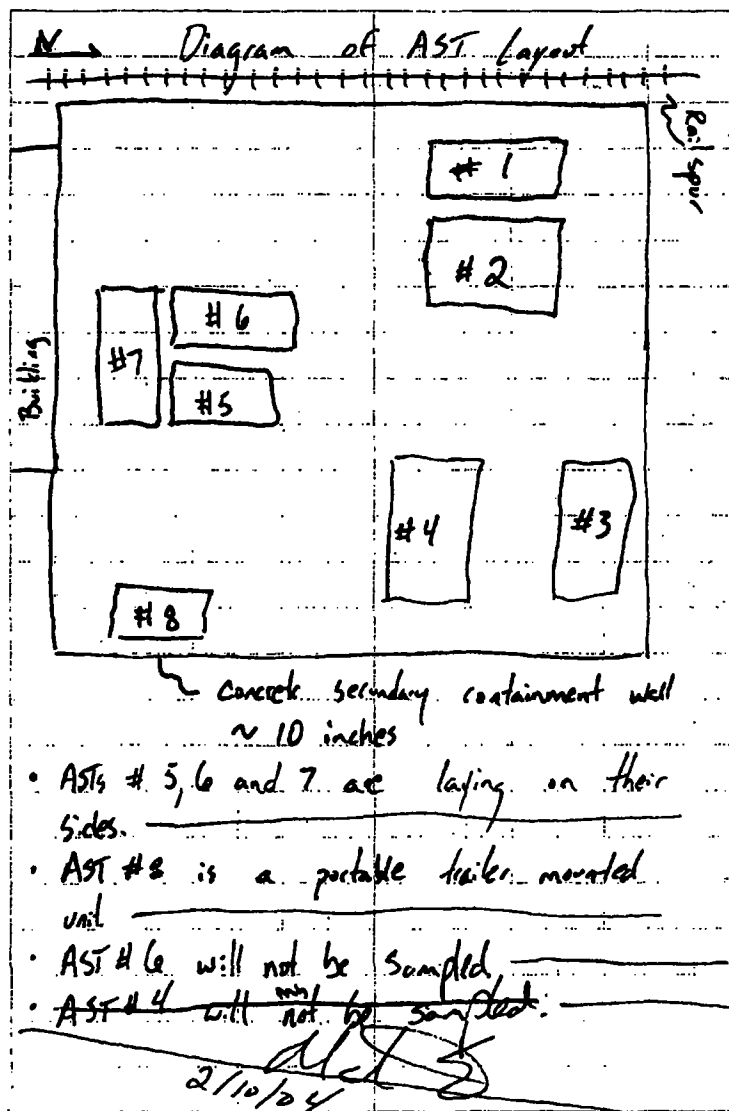 N
Diagram of AST Layout
Rail spur
# 1
# 2
# 6
#7
#5
Building
#4
#3
# 8
Concrete secondary containment wall
~ 10 inches
• ASTs # 5, 6 and 7 are laying on their
sides.
• AST #8 is a portable trailer mounted
unit
• AST # 6 will not be sampled.
• AST # 4 will not be sampled.
2/10/04